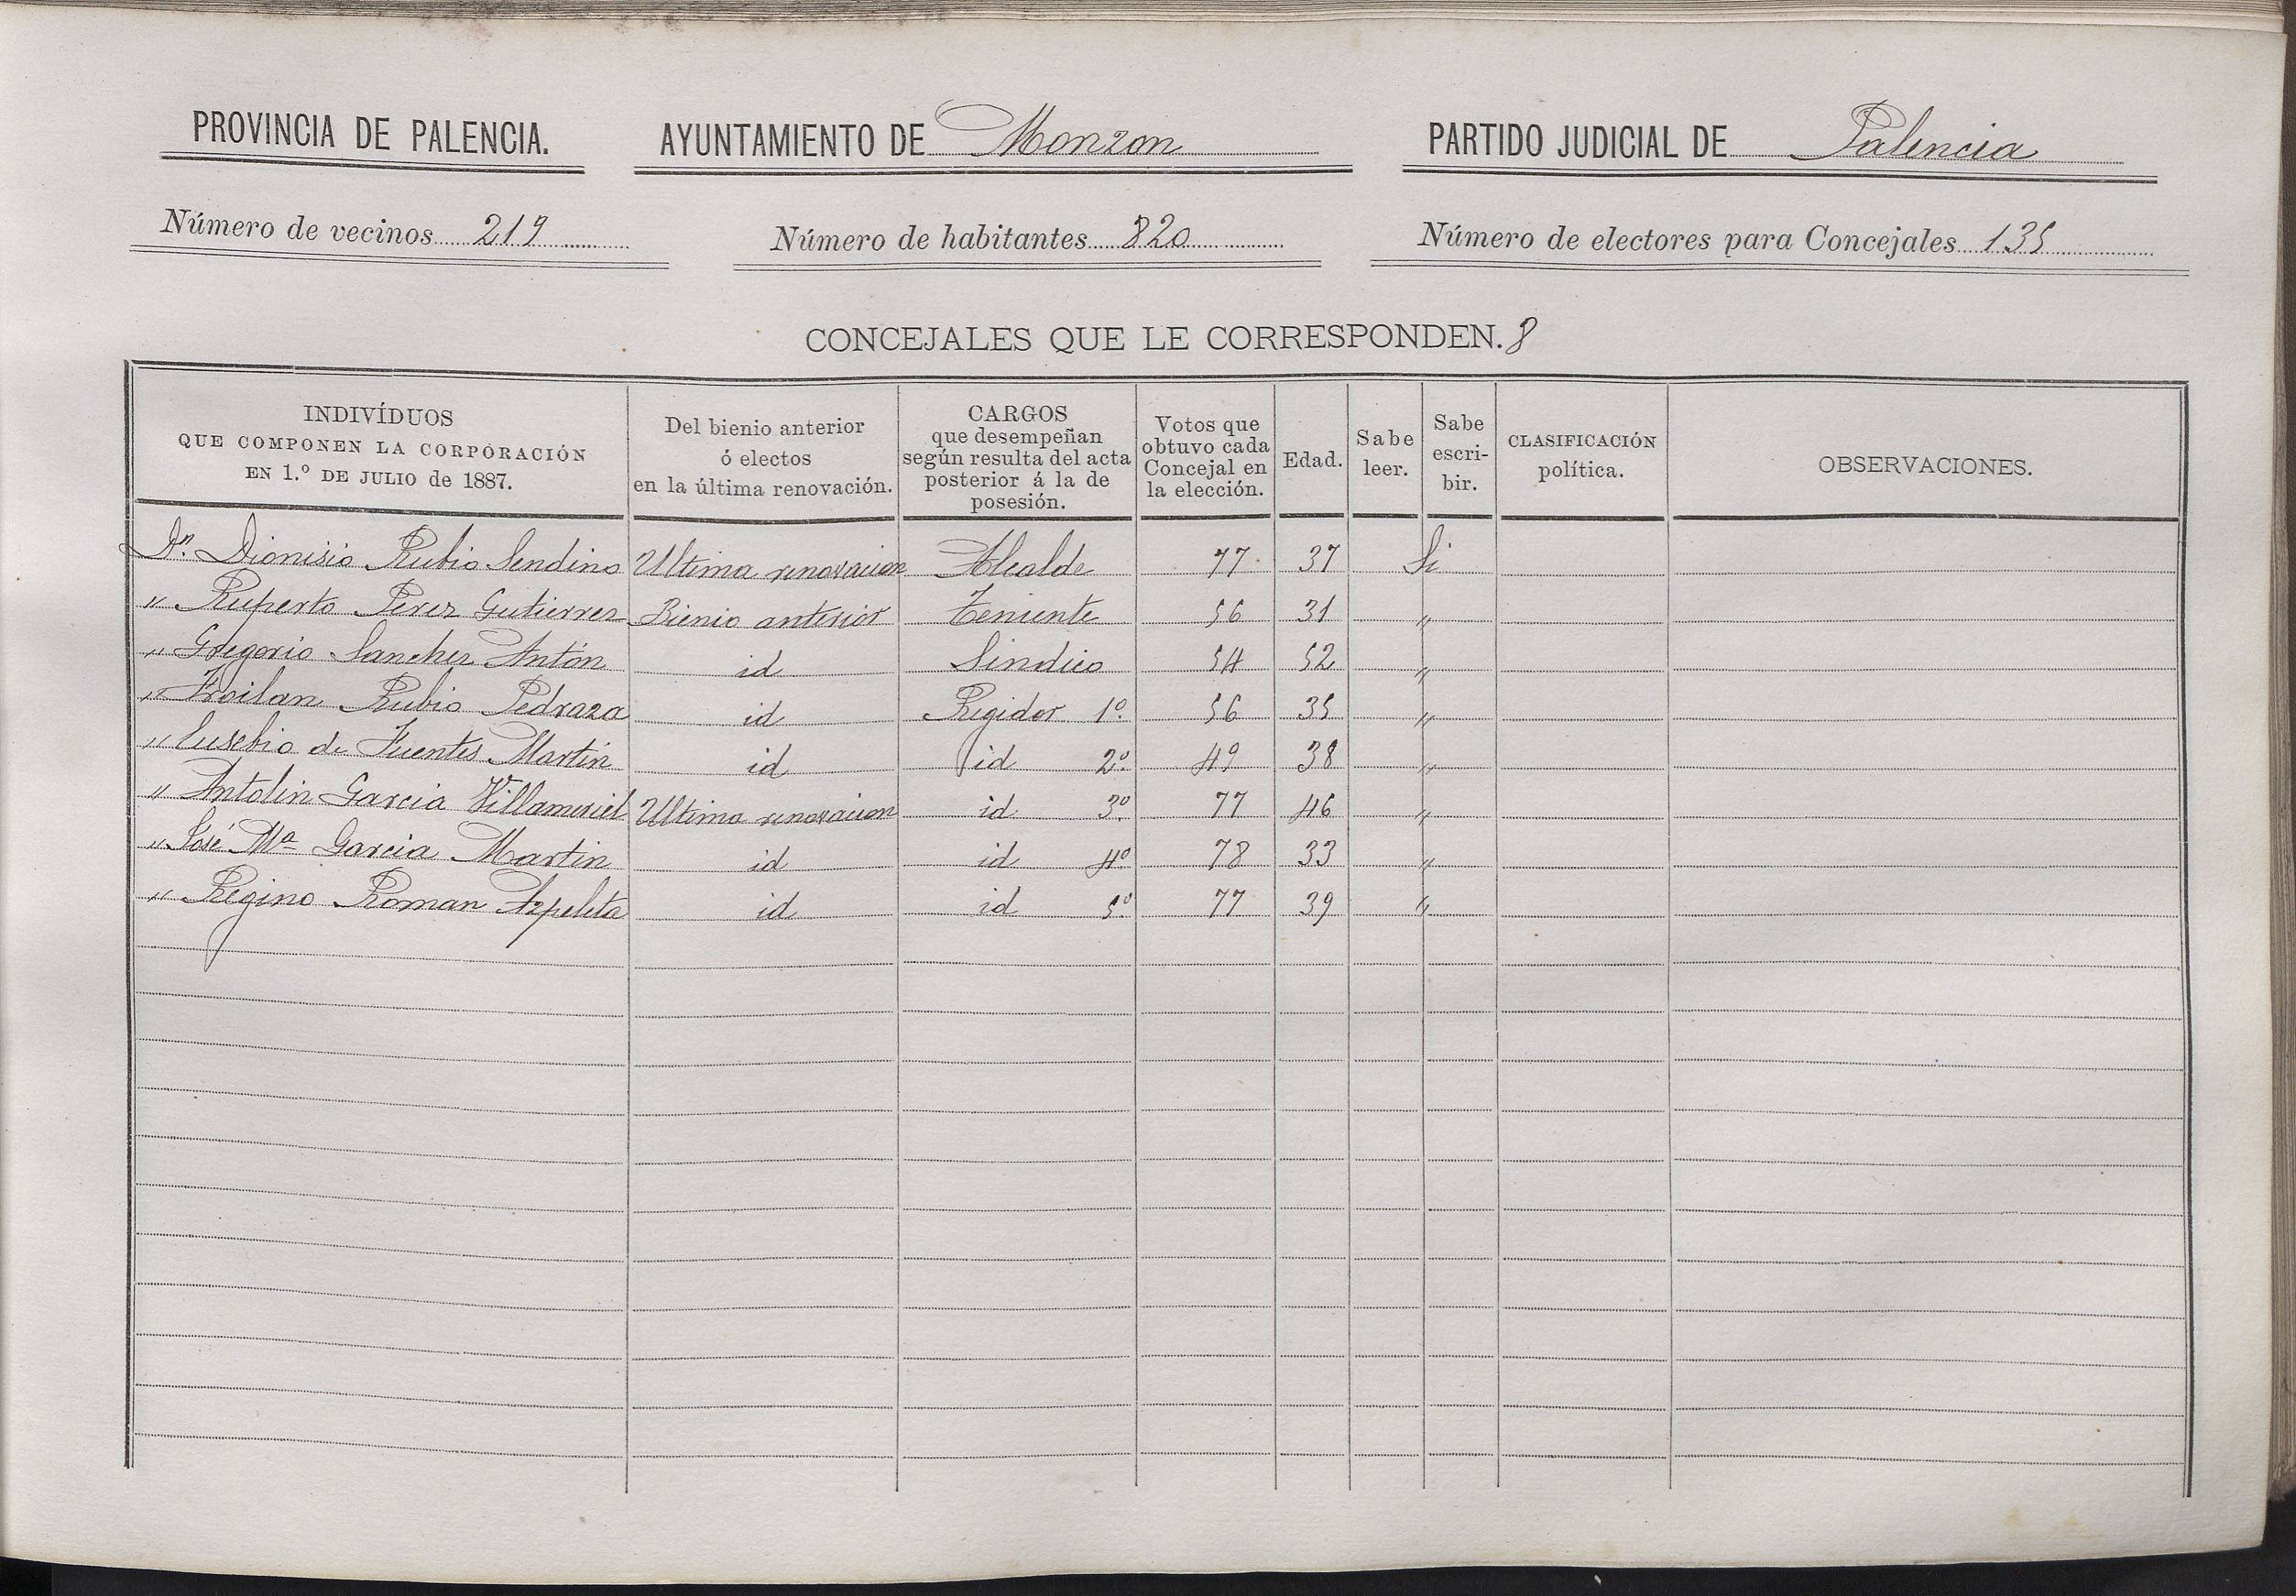 PROVINCIA DE PALENCIA. AYUNTAMIENTO DE Monzon PARTIDO JUDICIAL DE Palencia
Número de vecinos 219 Número de habitantes 820 Número de electores para Concejales 135
CONCEJALES QUE LE CORRESPONDEN. 8
INDIVÍDUOS
QUE COMPONEN LA CORPORACIÓN
EN 1.º DE JULIO de 1887.
Del bienio anterior
ó electos
en la última renovación.
CARGOS
que desempeñan
según resulta del acta
posterior á la de
posesión.
Votos que
obtuvo cada
Concejal en
la elección.
Edad.
Sabe
leer.
Sabe
escri-
bir.
CLASIFICACIÓN
política.
OBSERVACIONES.
Dn. Dionisio Rubio Sendino Ultima renovacion Alcalde 77 37 Si
" Ruperto Perez Gutierrez Bienio anterior Teniente 56 31 "
" Gregorio Sanchez Antón id Sindico 54 52 "
" Froilan Rubio Pedraza id Regidor 1º. 56 35 "
" Eusebio de Fuentes Martin id id 2º. 49 38 "
" Antolin Garcia Villameriel Ultima renovacion id 3º. 77 46 "
" José Mª Garcia Martin id id 4º 78 33 "
" Regino Roman Azpeleta id id 5º 77 39 "